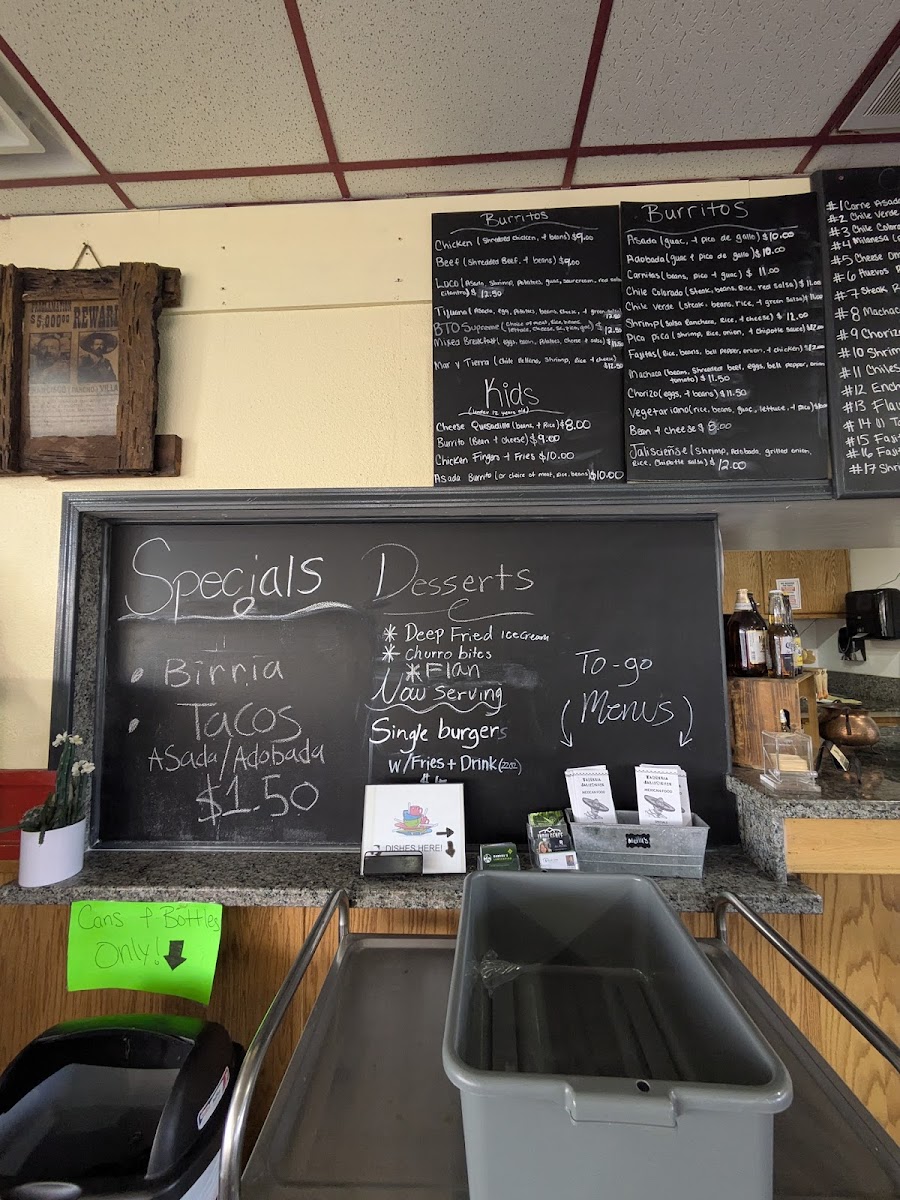 $5,000.00 REWARD
Burritos
Chicken (shredded chicken, + beans) $9.00
Beef (shredded Beef, + beans) $9.00
Loco (Asada, Shrimp, Potatoes, guac, sour cream, red salsa
Cilantro) $ 12.50
Tijuana (Asada, egg, Potatoes, beans, + green salsa)
12.50
BTO Supreme (choice of meat, Rice, beans,
lettuce, cheese, sc, + guac) $ 12.50
Mixed Breakfast (eggs, bean, potatoes, cheese + salsa) $11.50
Mar y Tierra (Chile Relleno, Shrimp, Rice + cheese)
$12.50
Kids
(under 12 years old)
Cheese Quesadilla (beans, + Rice) $8.00
Burrito (Bean + cheese) $9.00
Chicken Fingers + Fries $10.00
Asada Burrito (or choice of meat, rice, beans) $10.00
Burritos
Asada (guac, + pico de gallo) $10.00
Adobada (guac + pico de gallo) $10.00
Carnitas (beans, pico + guac) $ 11.00
Chile Colorado (steak, beans, Rice, red salsa) $11.00
Chile Verde (steak, beans, rice, + green salsa) $11.00
Shrimp (salsa Ranchera, Rice, + cheese) $ 12.00
Pica pica (shrimp, rice, onion, + chipotle sauce) $12.00
Fajitas (Rice, beans, bell pepper, onion, + chicken) $12.00
Machaca (beans, Shredded beef, eggs, bell pepper, onion
tomato) $ 11.50
Chorizo (eggs, + beans) $11.50
Vegetariano (rice, beans, guac, lettuce, + pico)
Bean + cheese $ 8.00
Jalisciense (Shrimp, Adobada, grilled onion,
Rice, Chipotle salsa) $ 12.00
#1 Carne Asada
#2 Chile Verde
#3 Chile Colora
#4 Milanesa
#5 Cheese Om
#6 Huevos R
#7 Steak, R
#8 Machac
#9 Chorizo
#10 Shrim
#11 Chiles
#12 Ench
#13 Flau
#14
#15 Fajit
#16 Fajit
#17 Shri
Specials
Birria
Tacos
Asada/Adobada
$1.50
Desserts
* Deep Fried icecream
* Churro bites
* Flan
Now Serving
Single burgers
w/Fries + Drink
To-go
Menus
DISHES HERE!
MEXICAN FOOD
MEXICAN FOOD
Menu's
Cans + Bottles
Only!